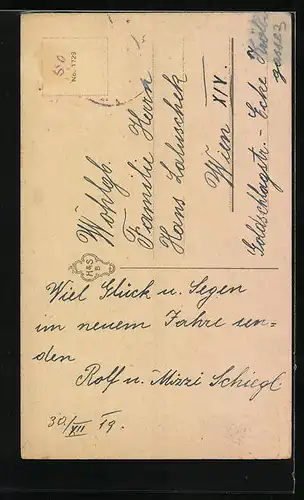 550
No. 1729
Wohlgb.
Familie Herrn
Hans Laluschek
Wien XIV.
Goldschlagstr. - Ecke
gasse 2
H&S
B
Viel Glück u. Segen
im neuem Jahre sen=
den
Rolf u. Mizzi Schiegl
30./XII 19.